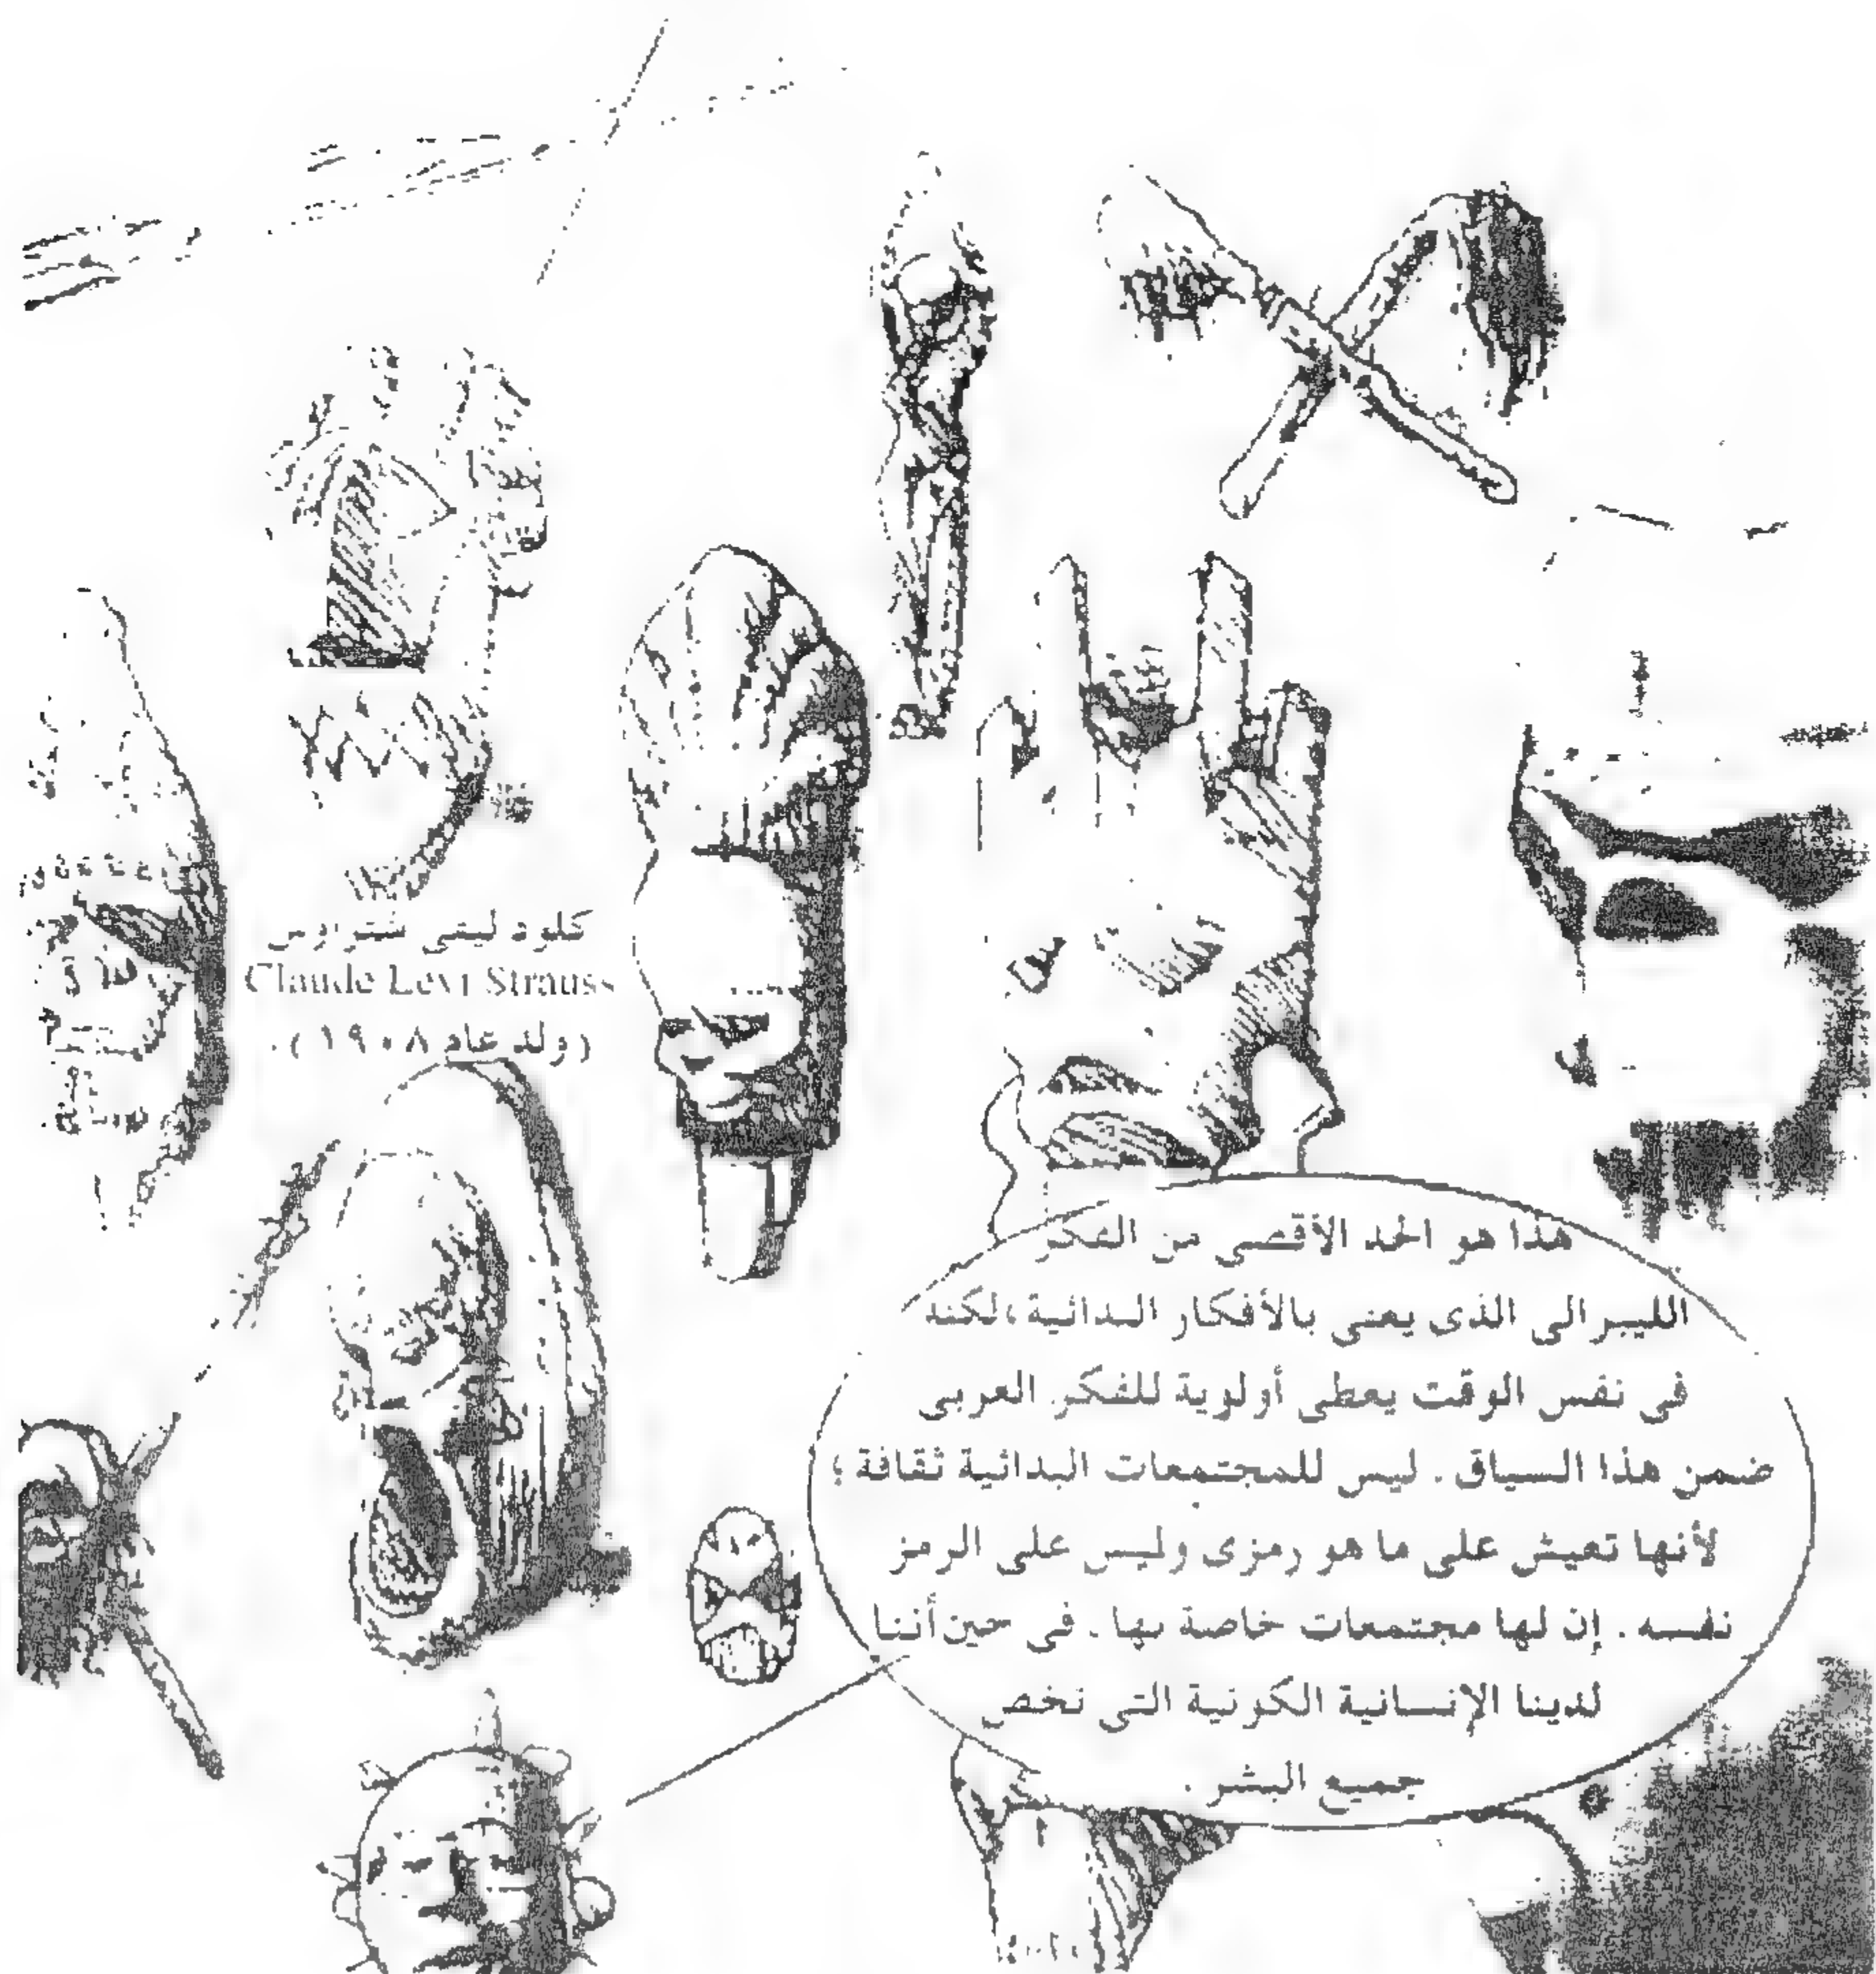 كلود ليفى شتراوس
Claude Levi Strauss
(ولد عام ١٩٠٨).
هذا هو الحد الأقصى من الفكر
الليبرالى الذى يعنى بالأفكار البدائية ،لكنه
فى نفس الوقت يعطى أولوية للفكر العربى
ضمن هذا السياق . ليس للمجتمعات البدائية ثقافة ؛
لأنها تعيش على ما هو رمزى وليس على الرمز
نفسه . إن لها مجتمعات خاصة بها . فى حين أننا
لدينا الإنسانية الكونية التى تخص
جميع البشر .